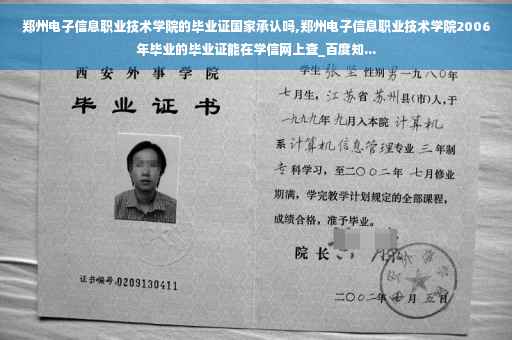 郑州电子信息职业技术学院的毕业证国家承认吗,郑州电子信息职业技术学院2006
年毕业的毕业证能在学信网上查_百度知...
西安外事学院
毕业证书
证书编号:0209130411
学生 张坚 性别 男 一九八〇年
七月生，江苏省 苏州县(市)人,于
一九九九年 九月入本院 计算机
系 计算机信息管理专业 三 年制
专科学习，至二〇〇二年 七月修业
期满，学完教学计划规定的全部课程，
成绩合格，准予毕业。
院长
二〇〇二年 月 五日